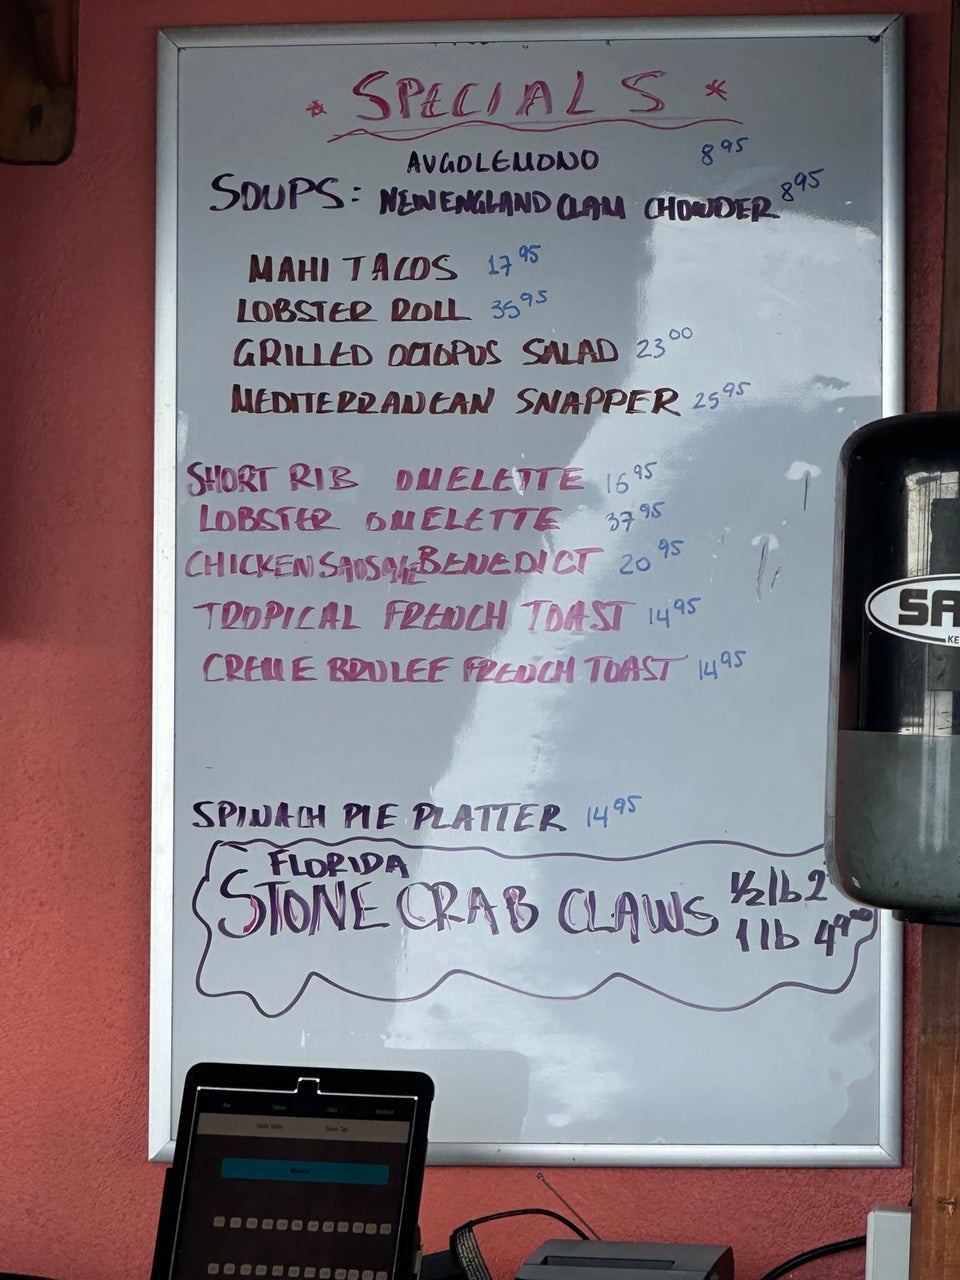 * SPECIALS *
AVGOLEMONO 8 95
SOUPS: NEW ENGLAND CLAM CHOWDER 8 95
MAHI TACOS 17 95
LOBSTER ROLL 35 95
GRILLED OCTOPUS SALAD 23 00
MEDITERRANEAN SNAPPER 25 95
SHORT RIB OMELETTE 16 95
LOBSTER OMELETTE 37 95
CHICKEN SAUSAGE BENEDICT 20 95
TROPICAL FRENCH TOAST 14 95
CREME BRULEE FRENCH TOAST 14 95
SPINACH PIE PLATTER 14 95
FLORIDA
STONE CRAB CLAWS 1/2 lb 2
1 lb 49 00
SA
KE